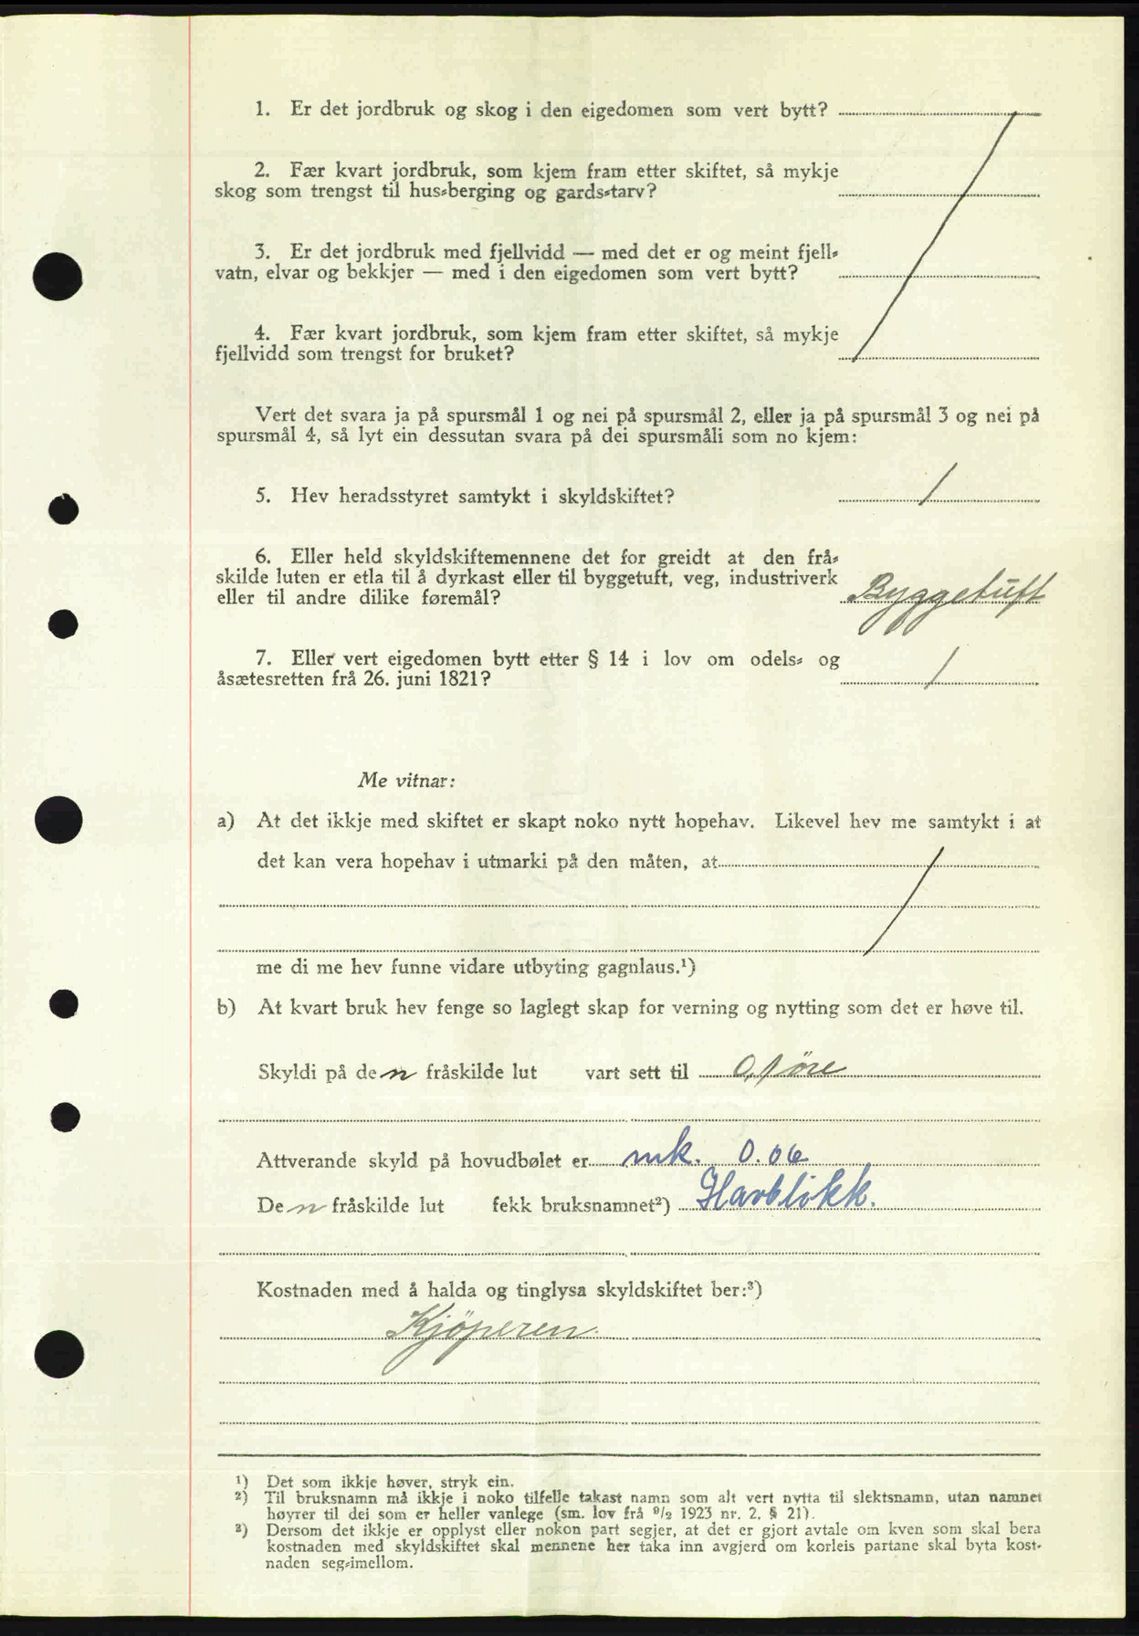 1. Er det jordbruk og skog i den eigedomen som vert bytt?
2. Fær kvart jordbruk, som kjem fram etter skiftet, så mykje
skog som trengst til hus-berging og gards-tarv?
3. Er det jordbruk med fjellvidd — med det er og meint fjell-
vatn, elvar og bekkjer — med i den eigedomen som vert bytt?
4. Fær kvart jordbruk, som kjem fram etter skiftet, så mykje
fjellvidd som trengst for bruket?
Vert det svara ja på spursmål 1 og nei på spursmål 2, eller ja på spursmål 3 og nei på
spursmål 4, så lyt ein dessutan svara på dei spursmåli som no kjem:
5. Hev heradsstyret samtykt i skyldskiftet?
6. Eller held skyldskiftemennene det for greidt at den frå-
skilde luten er etla til å dyrkast eller til byggetuft, veg, industriverk
eller til andre dilike føremål? Byggetuft
7. Eller vert eigedomen bytt etter § 14 i lov om odels- og
åsætesretten frå 26. juni 1821?
Me vitnar:
a) At det ikkje med skiftet er skapt noko nytt hopehav. Likevel hev me samtykt i at
det kan vera hopehav i utmarki på den måten, at
me di me hev funne vidare utbyting gagnlaus.¹)
b) At kvart bruk hev fenge so laglegt skap for verning og nytting som det er høve til.
Skyldi på den fråskilde lut vart sett til 0,1 öre
Attverande skyld på hovudbølet er mk. 0.06
Den fråskilde lut fekk bruksnamnet²) Havblikk.
Kostnaden med å halda og tinglysa skyldskiftet ber:³)
Kjöperen.
¹) Det som ikkje høver, stryk ein.
²) Til bruksnamn må ikkje i noko tilfelle takast namn som alt vert nytta til slektsnamn, utan namnet
høyrer til dei som er heller vanlege (sm. lov frå ⁹/₂ 1923 nr. 2, § 21).
³) Dersom det ikkje er opplyst eller nokon part segjer, at det er gjort avtale om kven som skal bera
kostnaden med skyldskiftet skal mennene her taka inn avgjerd om korleis partane skal byta kost-
naden seg-imellom.